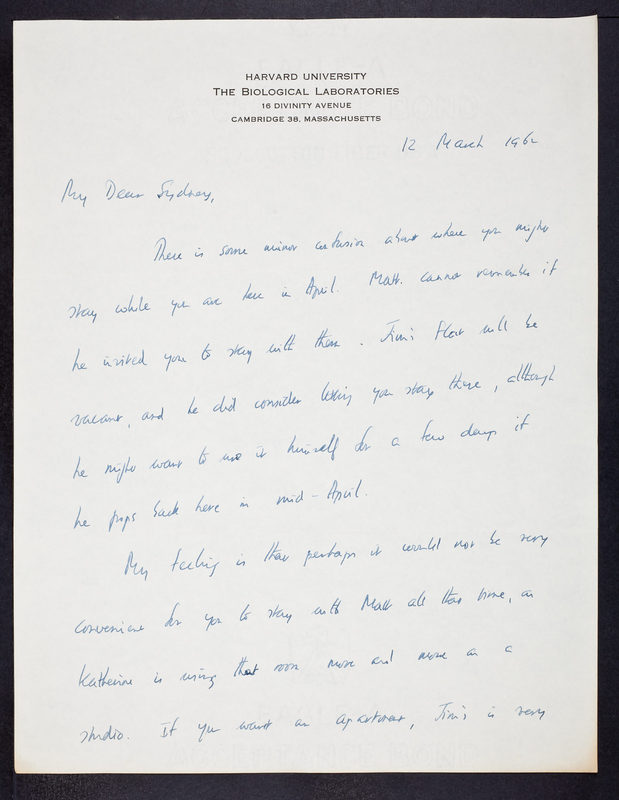 HARVARD UNIVERSITY
THE BIOLOGICAL LABORATORIES
16 DIVINITY AVENUE
CAMBRIDGE 38, MASSACHUSETTS
12 March 1962
My Dear Sydney,
There is some minor confusion about where you might
stay while you are here in April. Matt. cannot remember if
he invited you to stay with them. Jim's flat will be
vacant, and he did consider letting you stay there, although
he might want to use it himself for a few days if
he pops back here in mid-April.
My feeling is that perhaps it would not be very
convenient for you to stay with Matt all that time, as
Katherine is using that room more and more as a
studio. If you want an apartment, Jim's is very